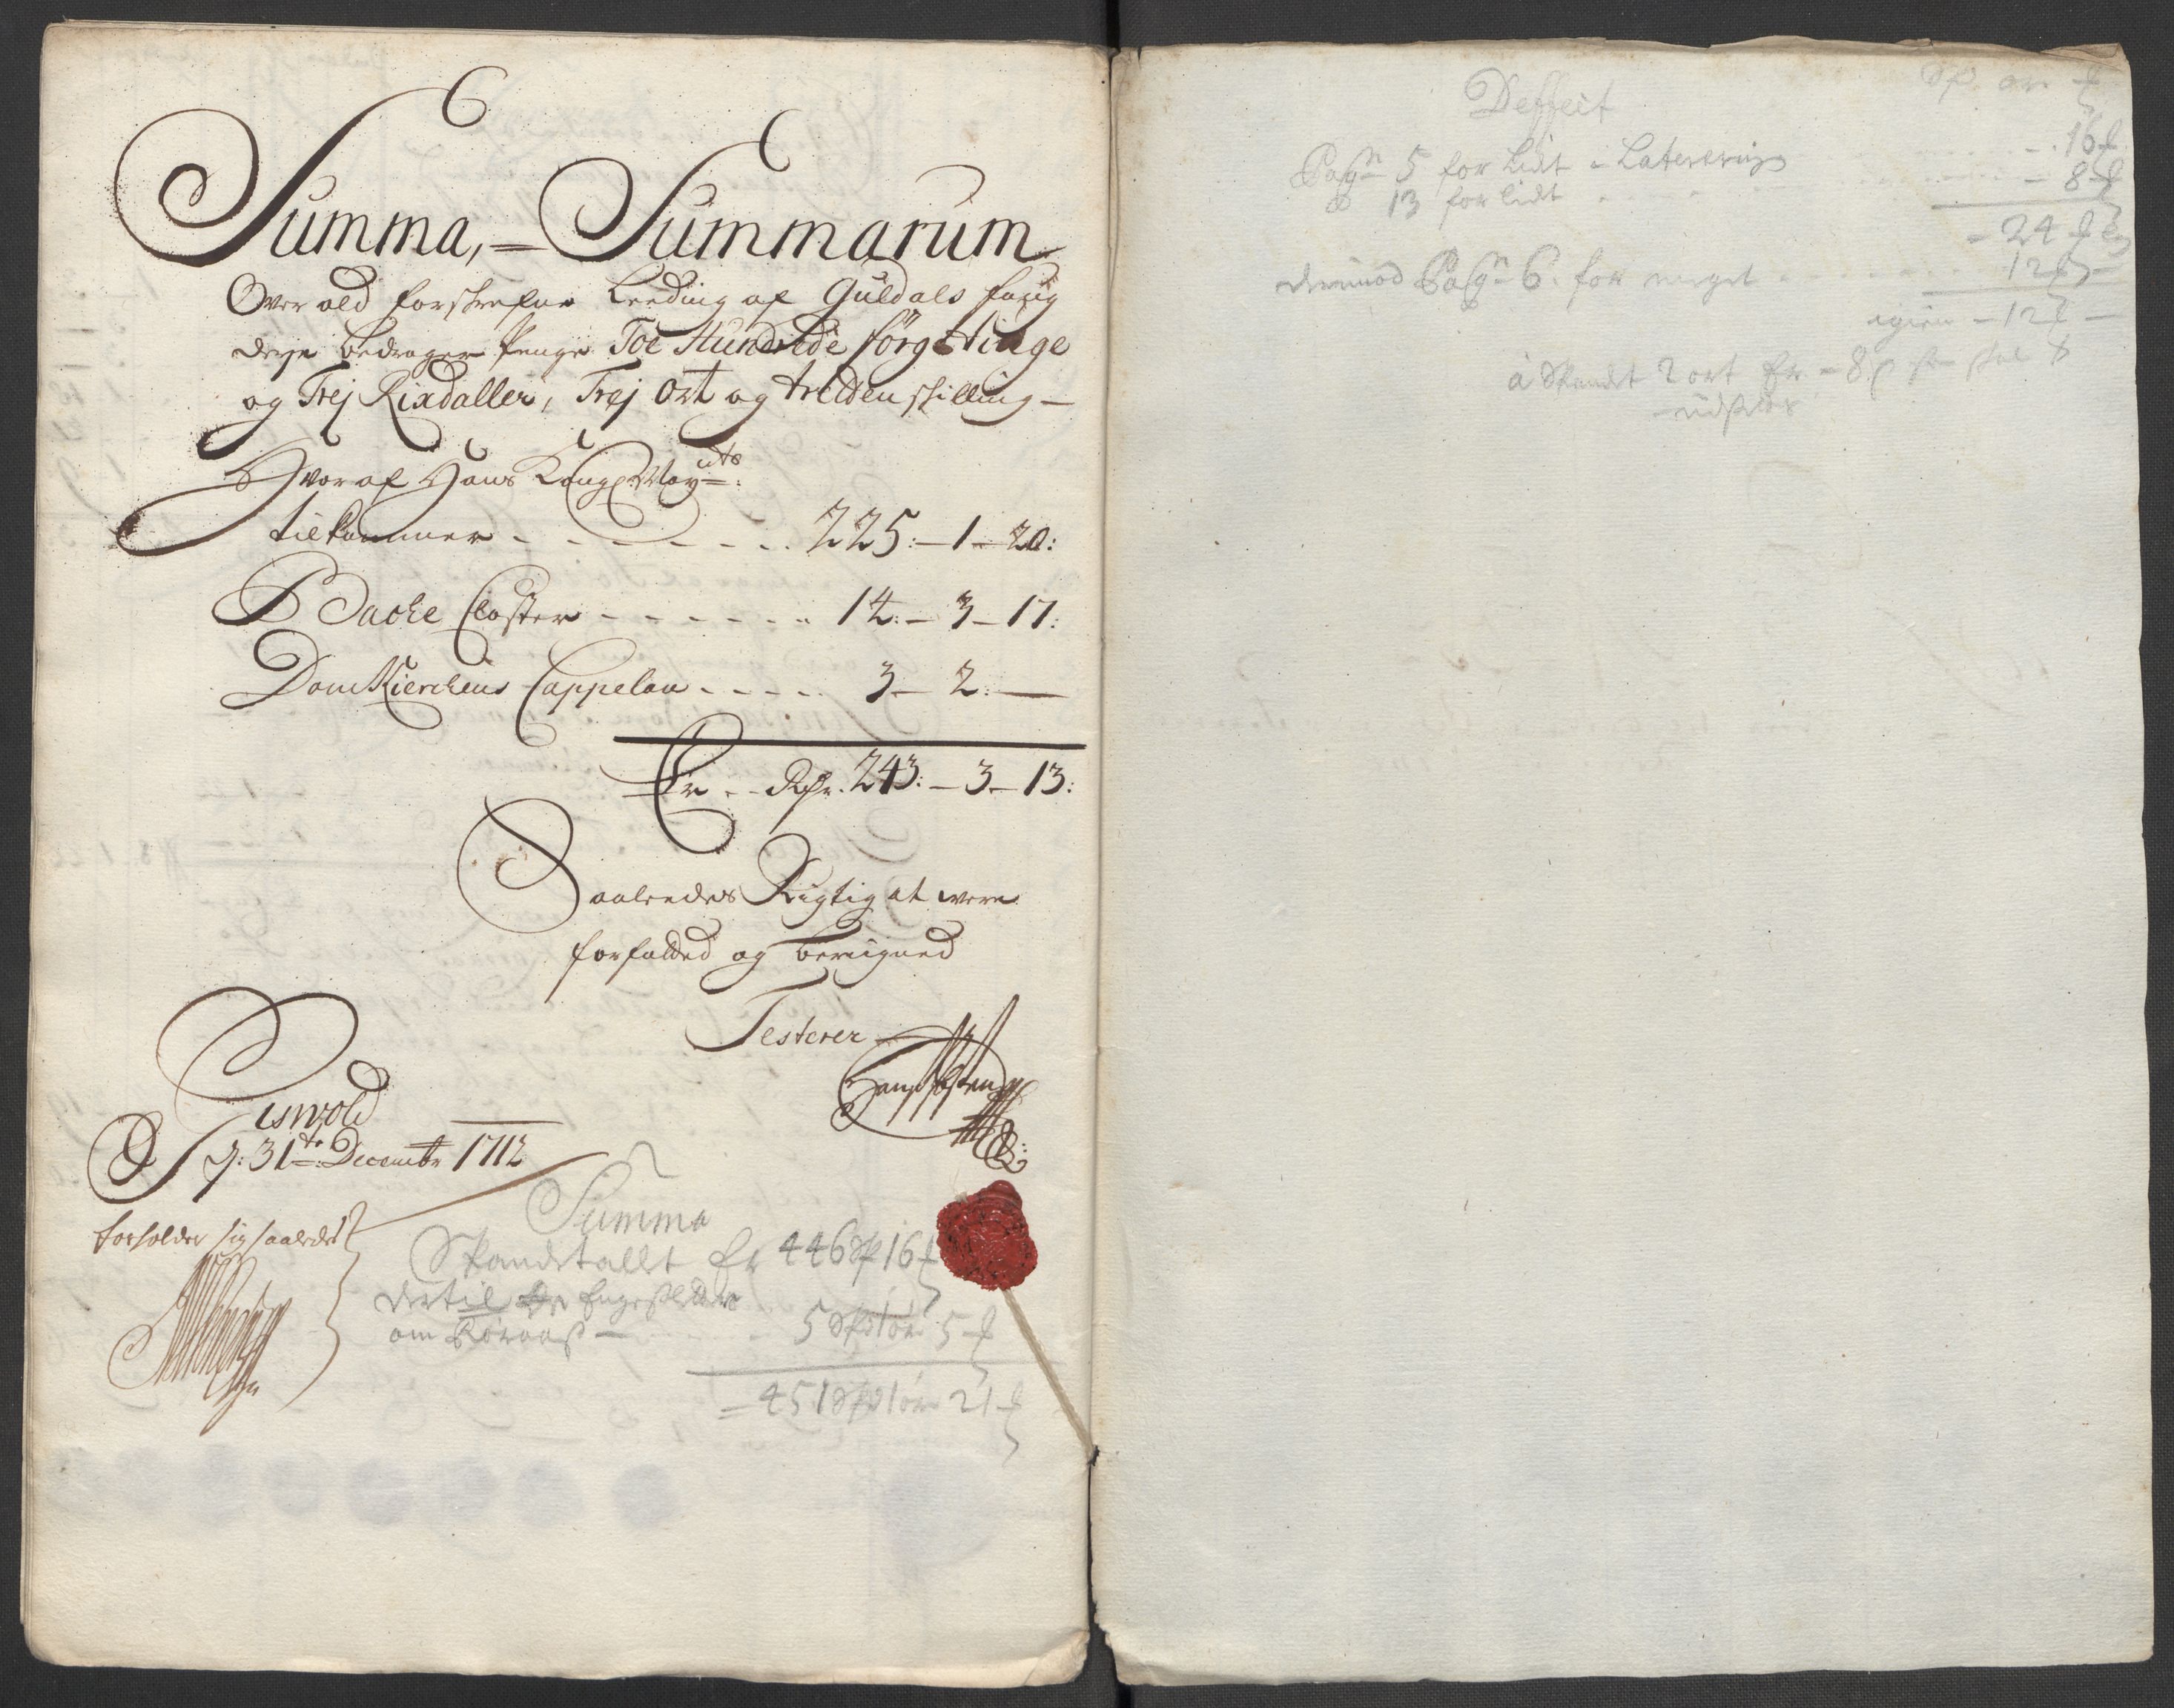 Summa, = Summarum
Over ald forskrefne Leeding af Guldals fong
derje bedrager Penge Toe Hundrede förgetiuge
og Trej Rixdaller, Trej Ort og tretten skilling —
Hvor af Hans Kongl: May:ts
tilkommer - - - - - - - 225: — 1 — 20:
Backe Closter - - - - - - 14: — 3 — 17:
DomKierchens Cappelan - - - - 3 — 2: —
Er - - Rdr. 243: — 3 — 13:
Saaledes Rigtig at were
forfatted og beregned
Testerer
Ciswold
D: 31te Decembr 1712
forholder sig saaledes
Summa
Skandtallet er 446 16
dertil
om Röraas — 5 1 ör 5
= 451 1 ör 21
Deffect
Pag 5 for lidt i Laterering - - 16
13 for lidt - - - 8
- 24
derimod Pag 6. for meget - - - 12
igien - 12 —
à Skandt 2 ort er - 8